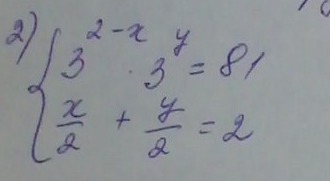 2) { 3^{2-x} · 3^y = 81
x/2 + y/2 = 2